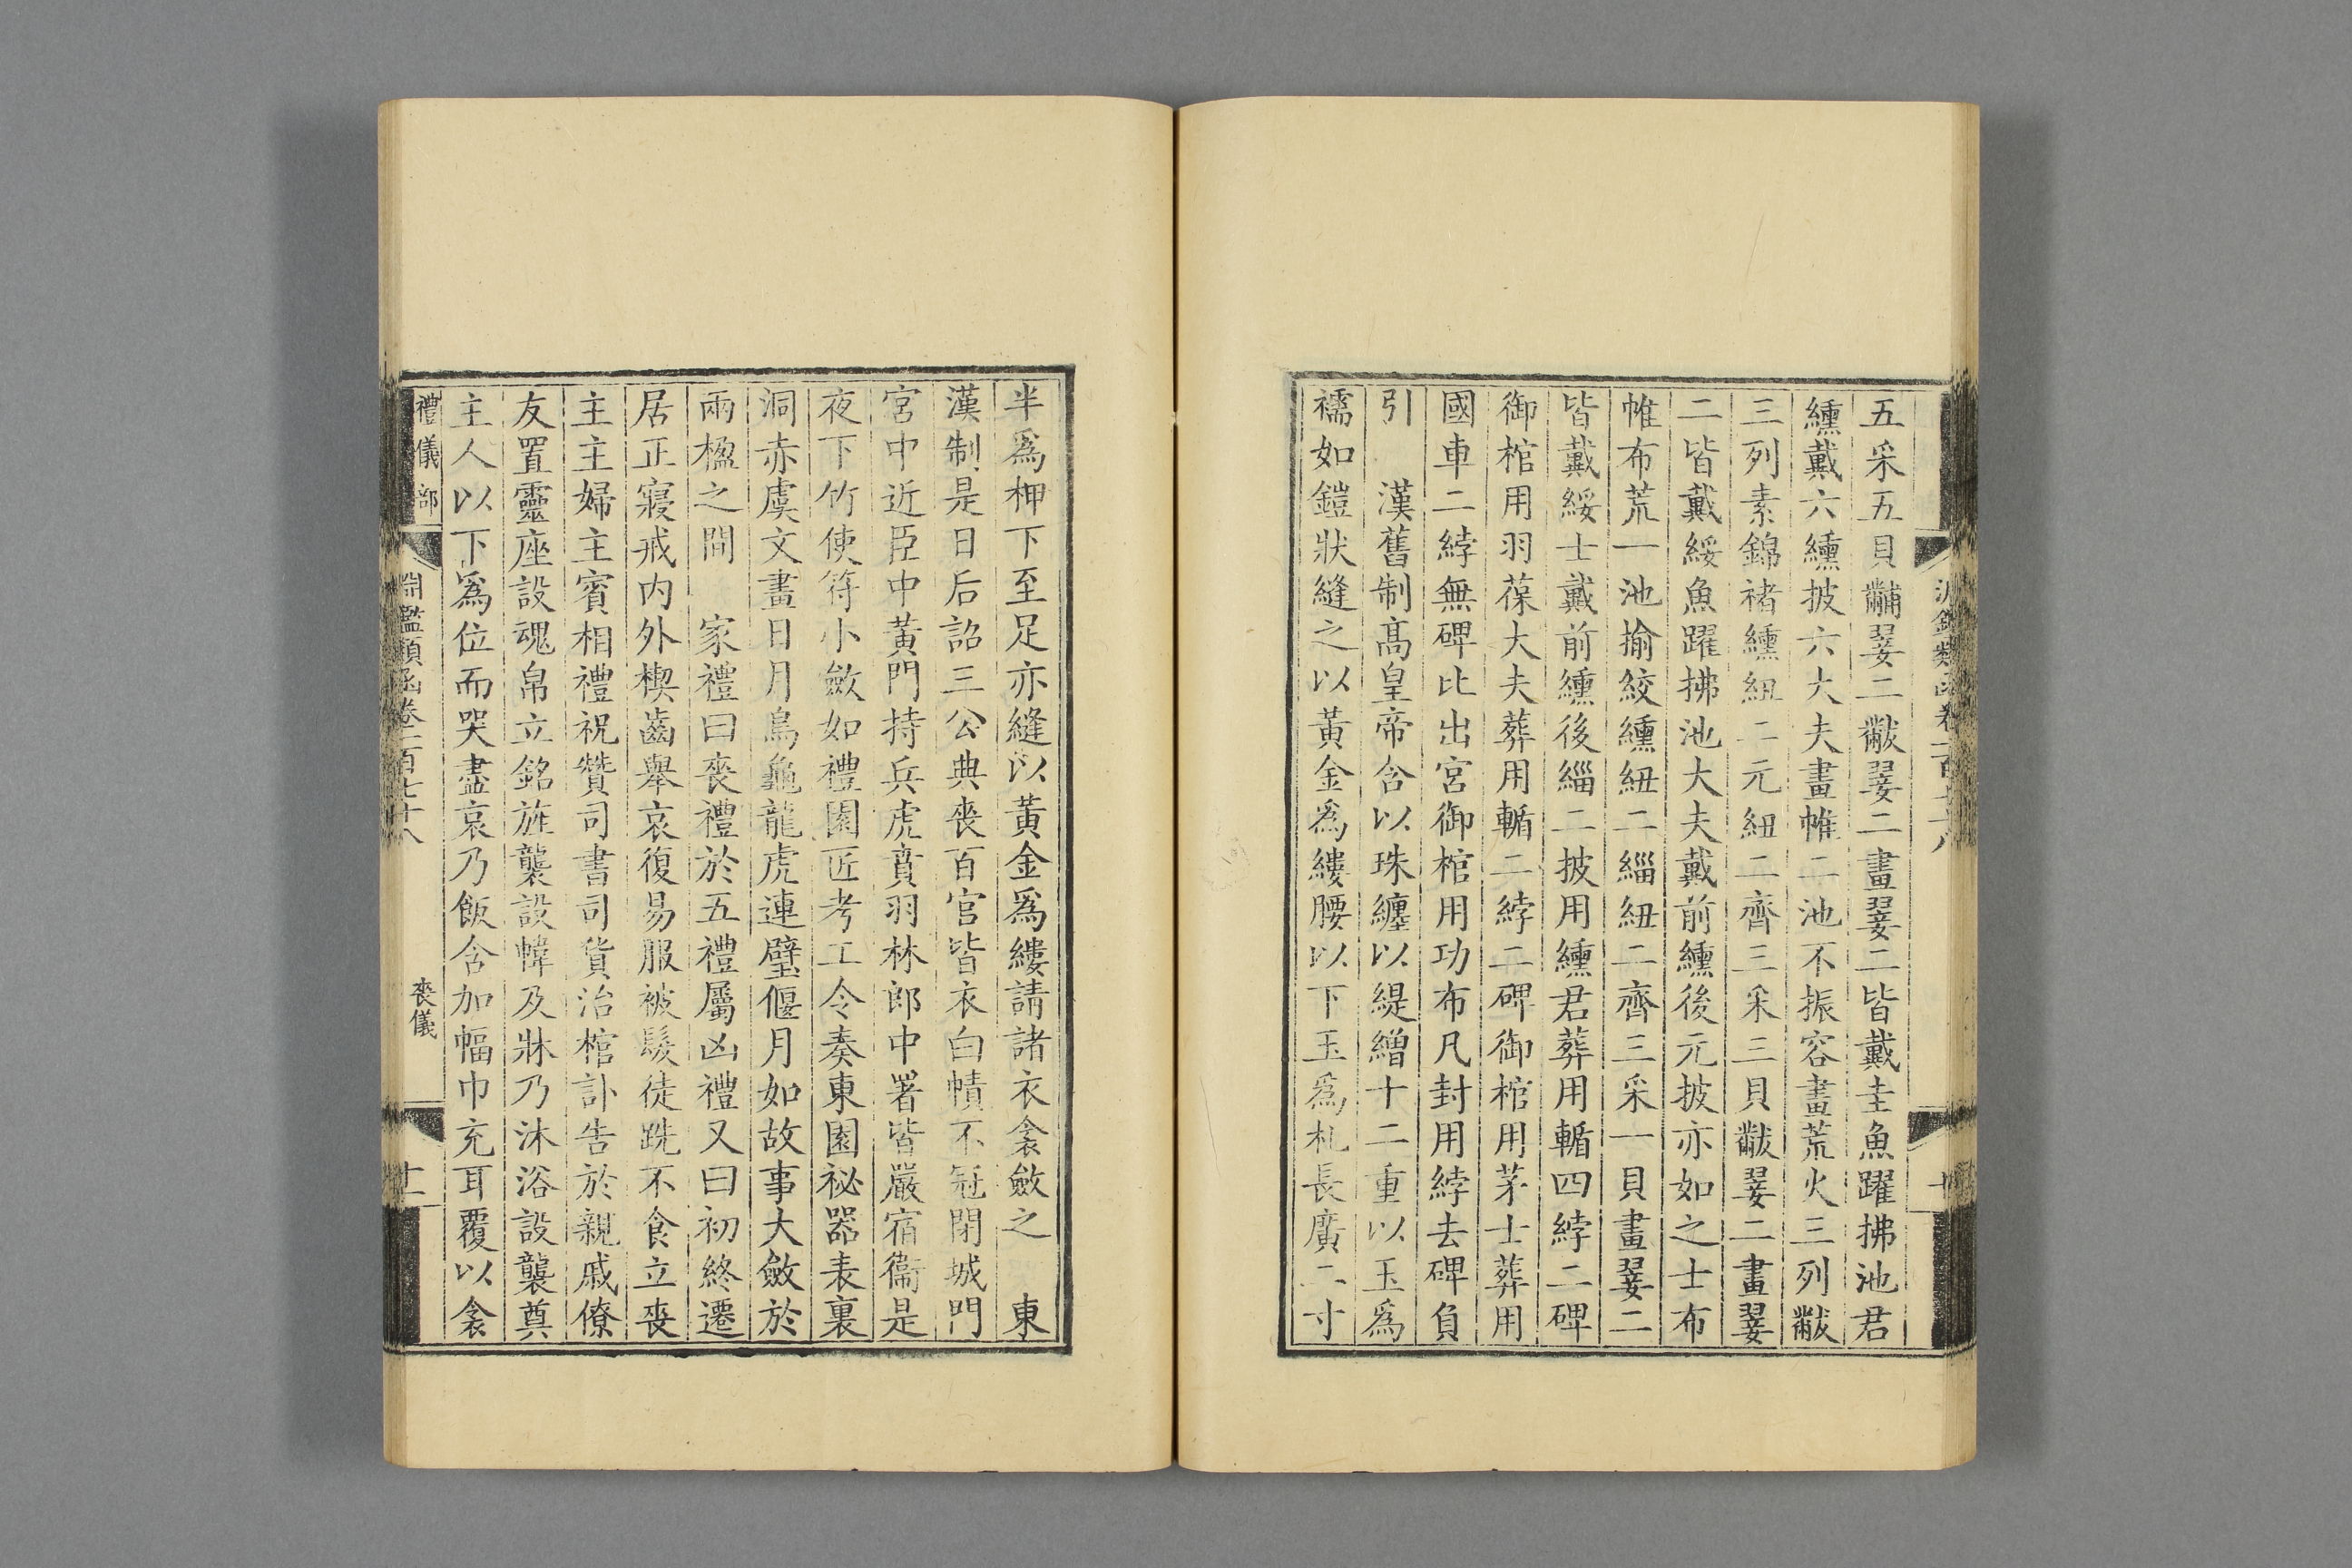 五采五貝黼翣二黻翣二畫翣二皆戴圭魚躍拂池君
纁戴六纁披六大夫畫帷二池不振容畫荒火三列黻
三列素錦褚纁紐二元紐二齊三采三貝黻翣二畫翣
二皆戴綏魚躍拂池大夫戴前纁後元披亦如之士布
帷布荒一池揄絞纁紐二緇紐二齊三采一貝畫翣二
皆戴綏士戴前纁後緇二披用纁君葬用輴四綍二碑
御棺用羽葆大夫葬用輴二綍二碑御棺用茅士葬用
國車二綍無碑比出宮御棺用功布凡封用綍去碑負
引　漢舊制高皇帝含以珠纏以緹繒十二重以玉為
襦如鎧狀縫之以黃金為縷腰以下玉為札長廣二寸
半為柙下至足亦縫以黃金為縷請諸衣衾斂之　東
漢制是日后詔三公典喪百官皆衣白幘不冠閉城門
宮中近臣中黃門持兵虎賁羽林郎中署皆嚴宿衞是
夜下竹使符小斂如禮園匠考工令奏東園祕器表裏
洞赤虡文畫日月鳥龜龍虎連璧偃月如故事大斂於
兩楹之間　家禮曰喪禮於五禮屬凶禮又曰初終遷
居正寢戒內外楔齒舉哀復易服被髮徒跣不食立喪
主主婦主賓相禮祝贊司書司貨治棺訃告於親戚僚
友置靈座設魂帛立銘旌襲設幃及牀乃沐浴設襲奠
主人以下為位而哭盡哀乃飯含加幅巾充耳覆以衾
禮儀部　淵鑑類函卷一百七十八　喪儀　十一